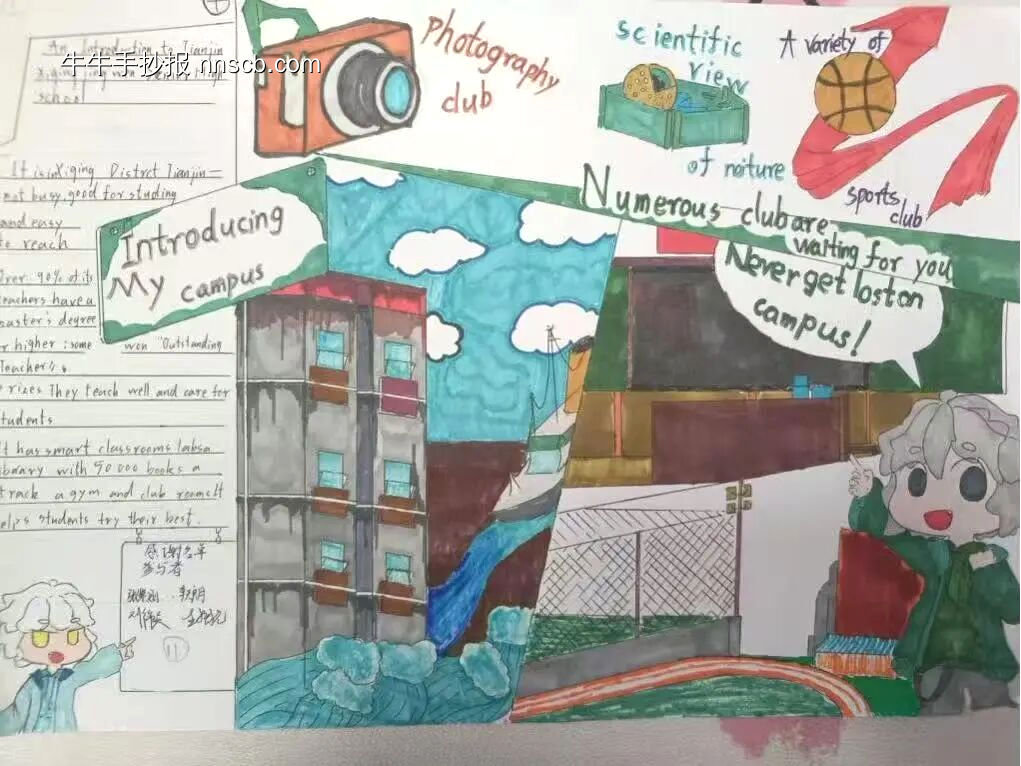 牛牛手抄报 nnscb.com
An Introduction to Tianjin
school
It is in Xiqing District Tianjin—
not busy, good for studing
and easy
to reach
over 90% of its
teachers have a
master's degree
or higher; some won "Outstanding
Teacher"
rizes They teach well and care for
students
It has smart classrooms labsa
library with 90000 books a
track a gym and club rooms It
helps students try their best.
感谢名单
参与者
11
Photography
club
scientific
view
of nature
A variety of
sports
club
Numerous club are
waiting for you
Introducing
My campus
Never get lost on
campus!